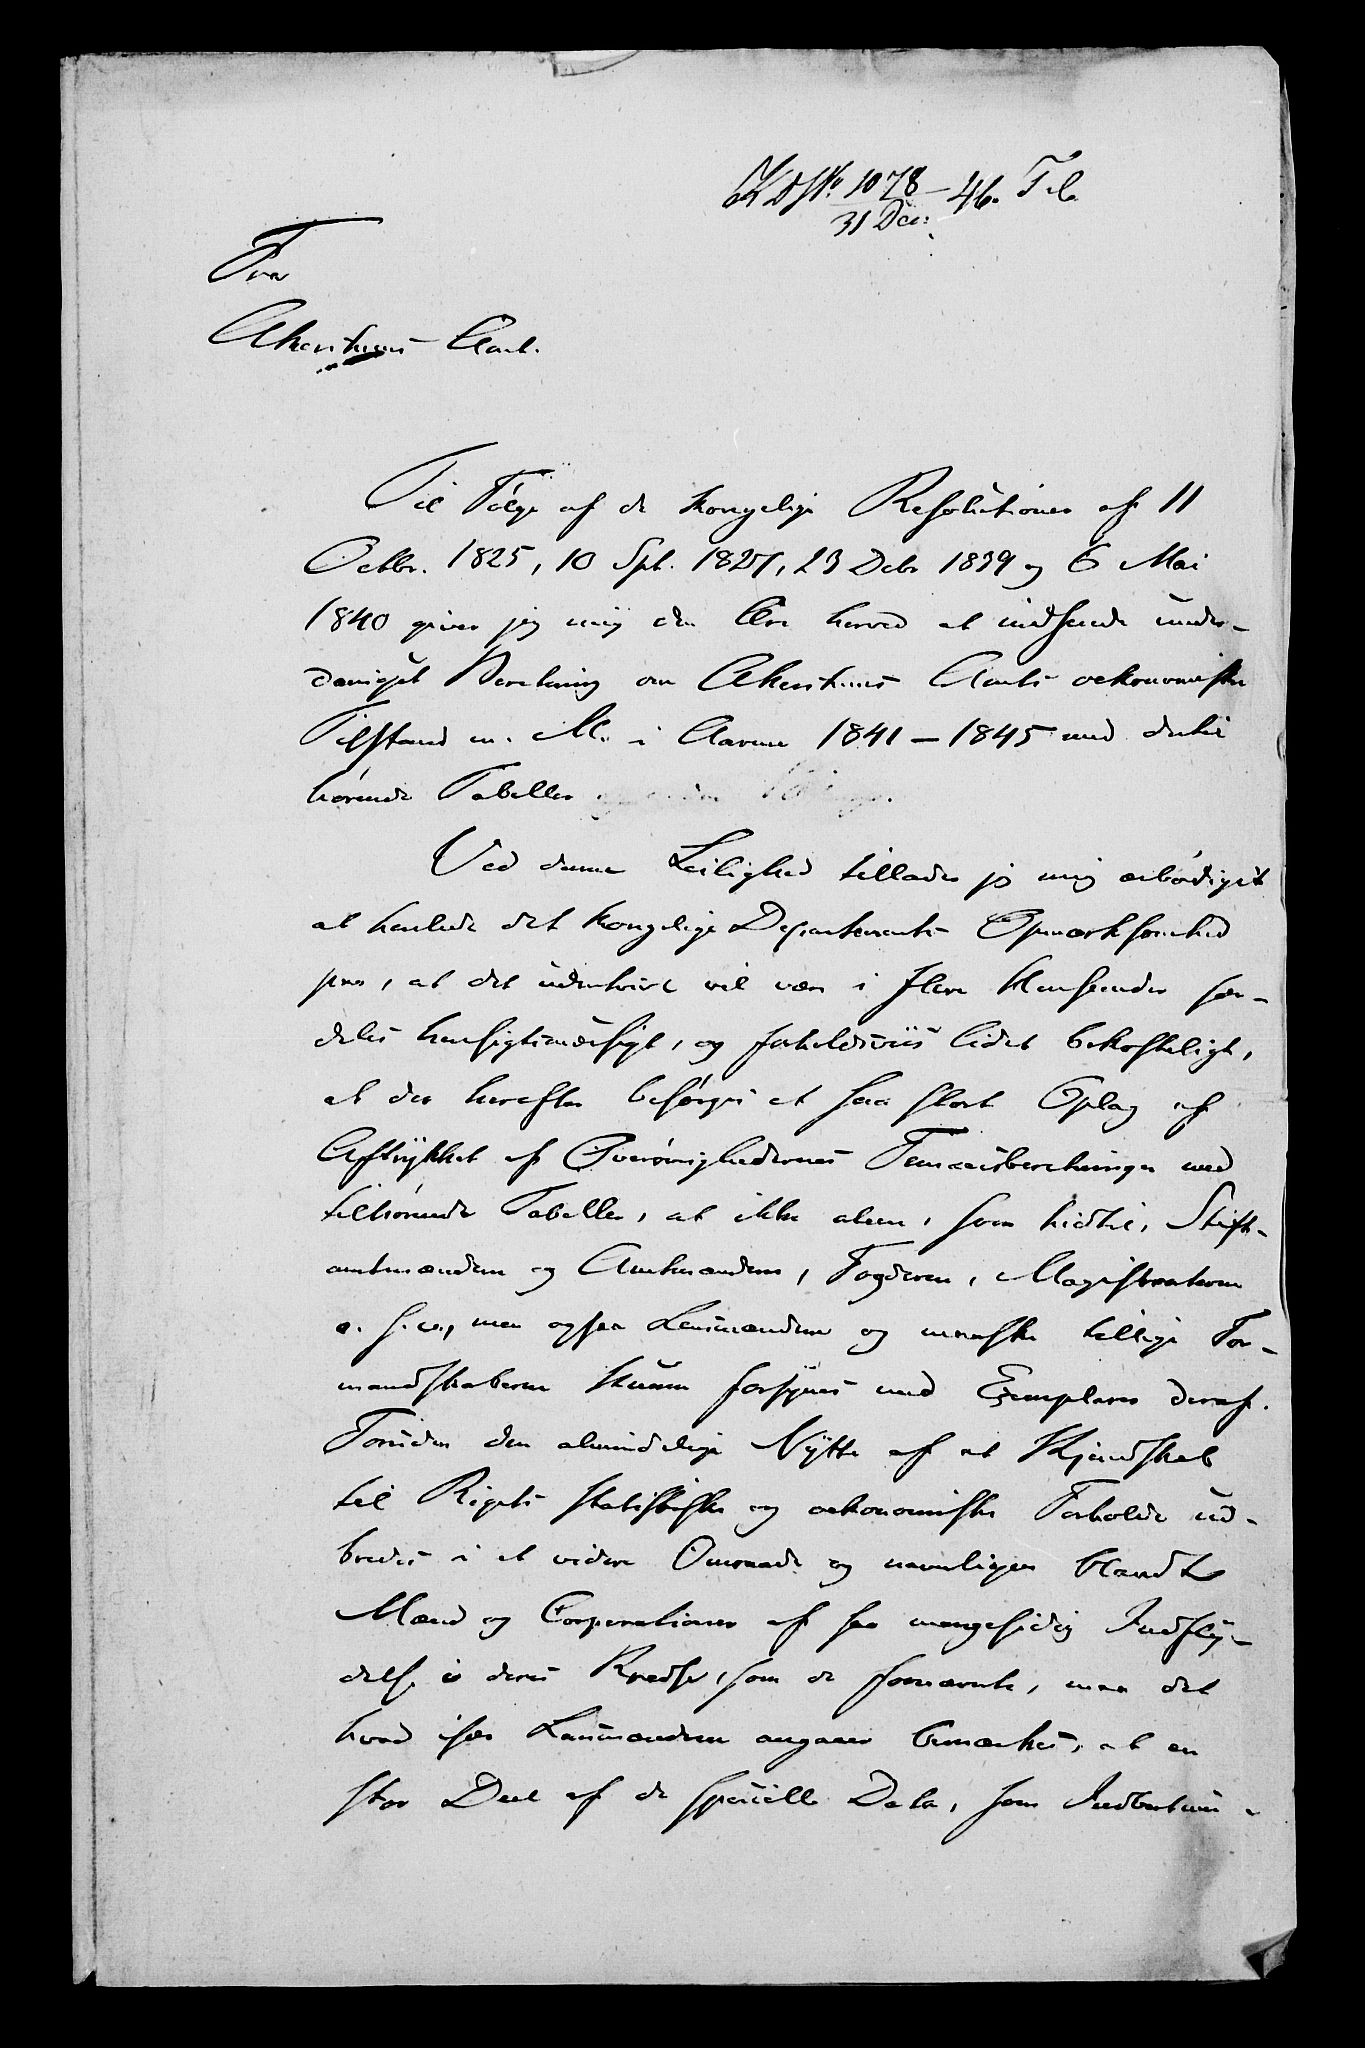 1078 - 46.
31 Dec:
Fra
Akershuus Amt.
Til Følge af de kongelige Resolutioner af 11
Octbr. 1825, 10 Sept. 1827, 23 Debr 1839 og 6 Mai
1840 giver jeg mig den Ære herved at indsende under-
danigst Beretning om Akershuus Amts oekonomiske
Tilstand m. M. i Aarene 1841 - 1845 med dertil
hørende Tabeller
Ved denne Leilighed tillader jeg mig ærbødigst
at henlede det kongelige Departements Opmærksomhed
paa, at det udentvivl vil være i flere Henseender sær-
deles hensigtsmæssigt, og forholdsviis lidet bekosteligt,
at der herefter besørges et saa stort Oplag af
Aftrykket af Øvrighedernes Femaarsberetninger med
tilhørende Tabeller, at ikke alene, som hidtil, Stift-
amtmændene og Amtmændene, Fogderne, Magistraterne
o. s. v., men ogsaa Lensmændene og maaske tillige For-
mandskaberne kunne forsynes med Exemplarer deraf.
Foruden den almindelige Nytte af at Kjendskab
til Rigets statistiske og oekonomiske Forholde ud-
bredes i et videre Omraade og navnligen blandt
Mænd og Corporationer af saa mangesidig Indfly-
delse i deres Kredse, som de fornævnte, maa det
hvad især Lensmændene angaaer bemærkes, at en
stor Deel af de specielle Data, som Indberetnin-